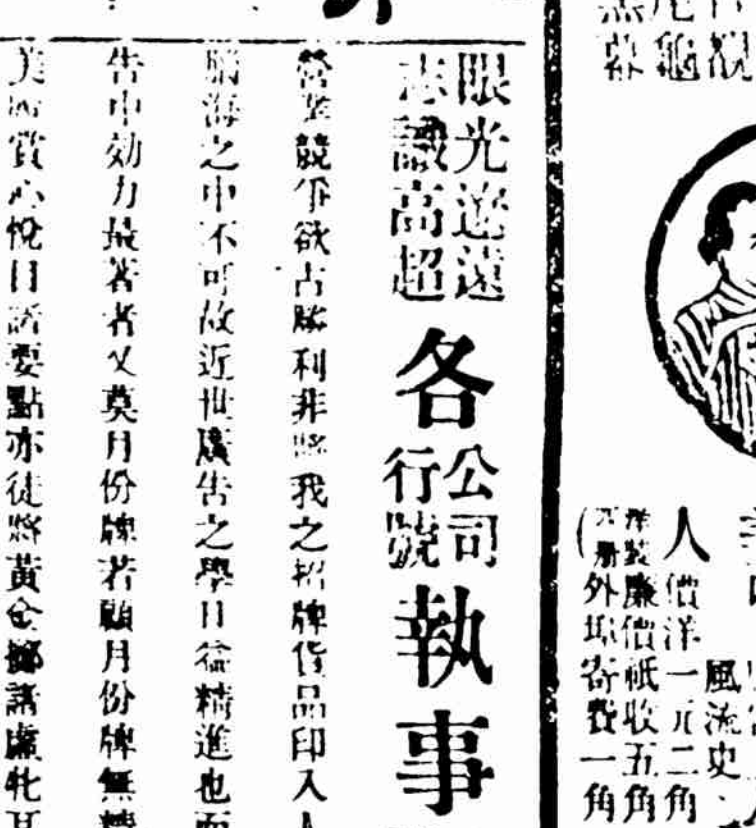 眼光遼遠
志識高超
各公司行號執事
營業競爭欲占勝利非將我之招牌貨品印入人
腦海之中不可故近世廣告之學日益精進也而
告中効力最著者又莫月份牌若顧月份牌無精
美術賞心悅目諸要點亦徒將黃金擲諸虛牝耳
黑幕
龜
觀
風流史
人
價洋一元二角
洋裝廉價祇收五角
外埠寄費一角